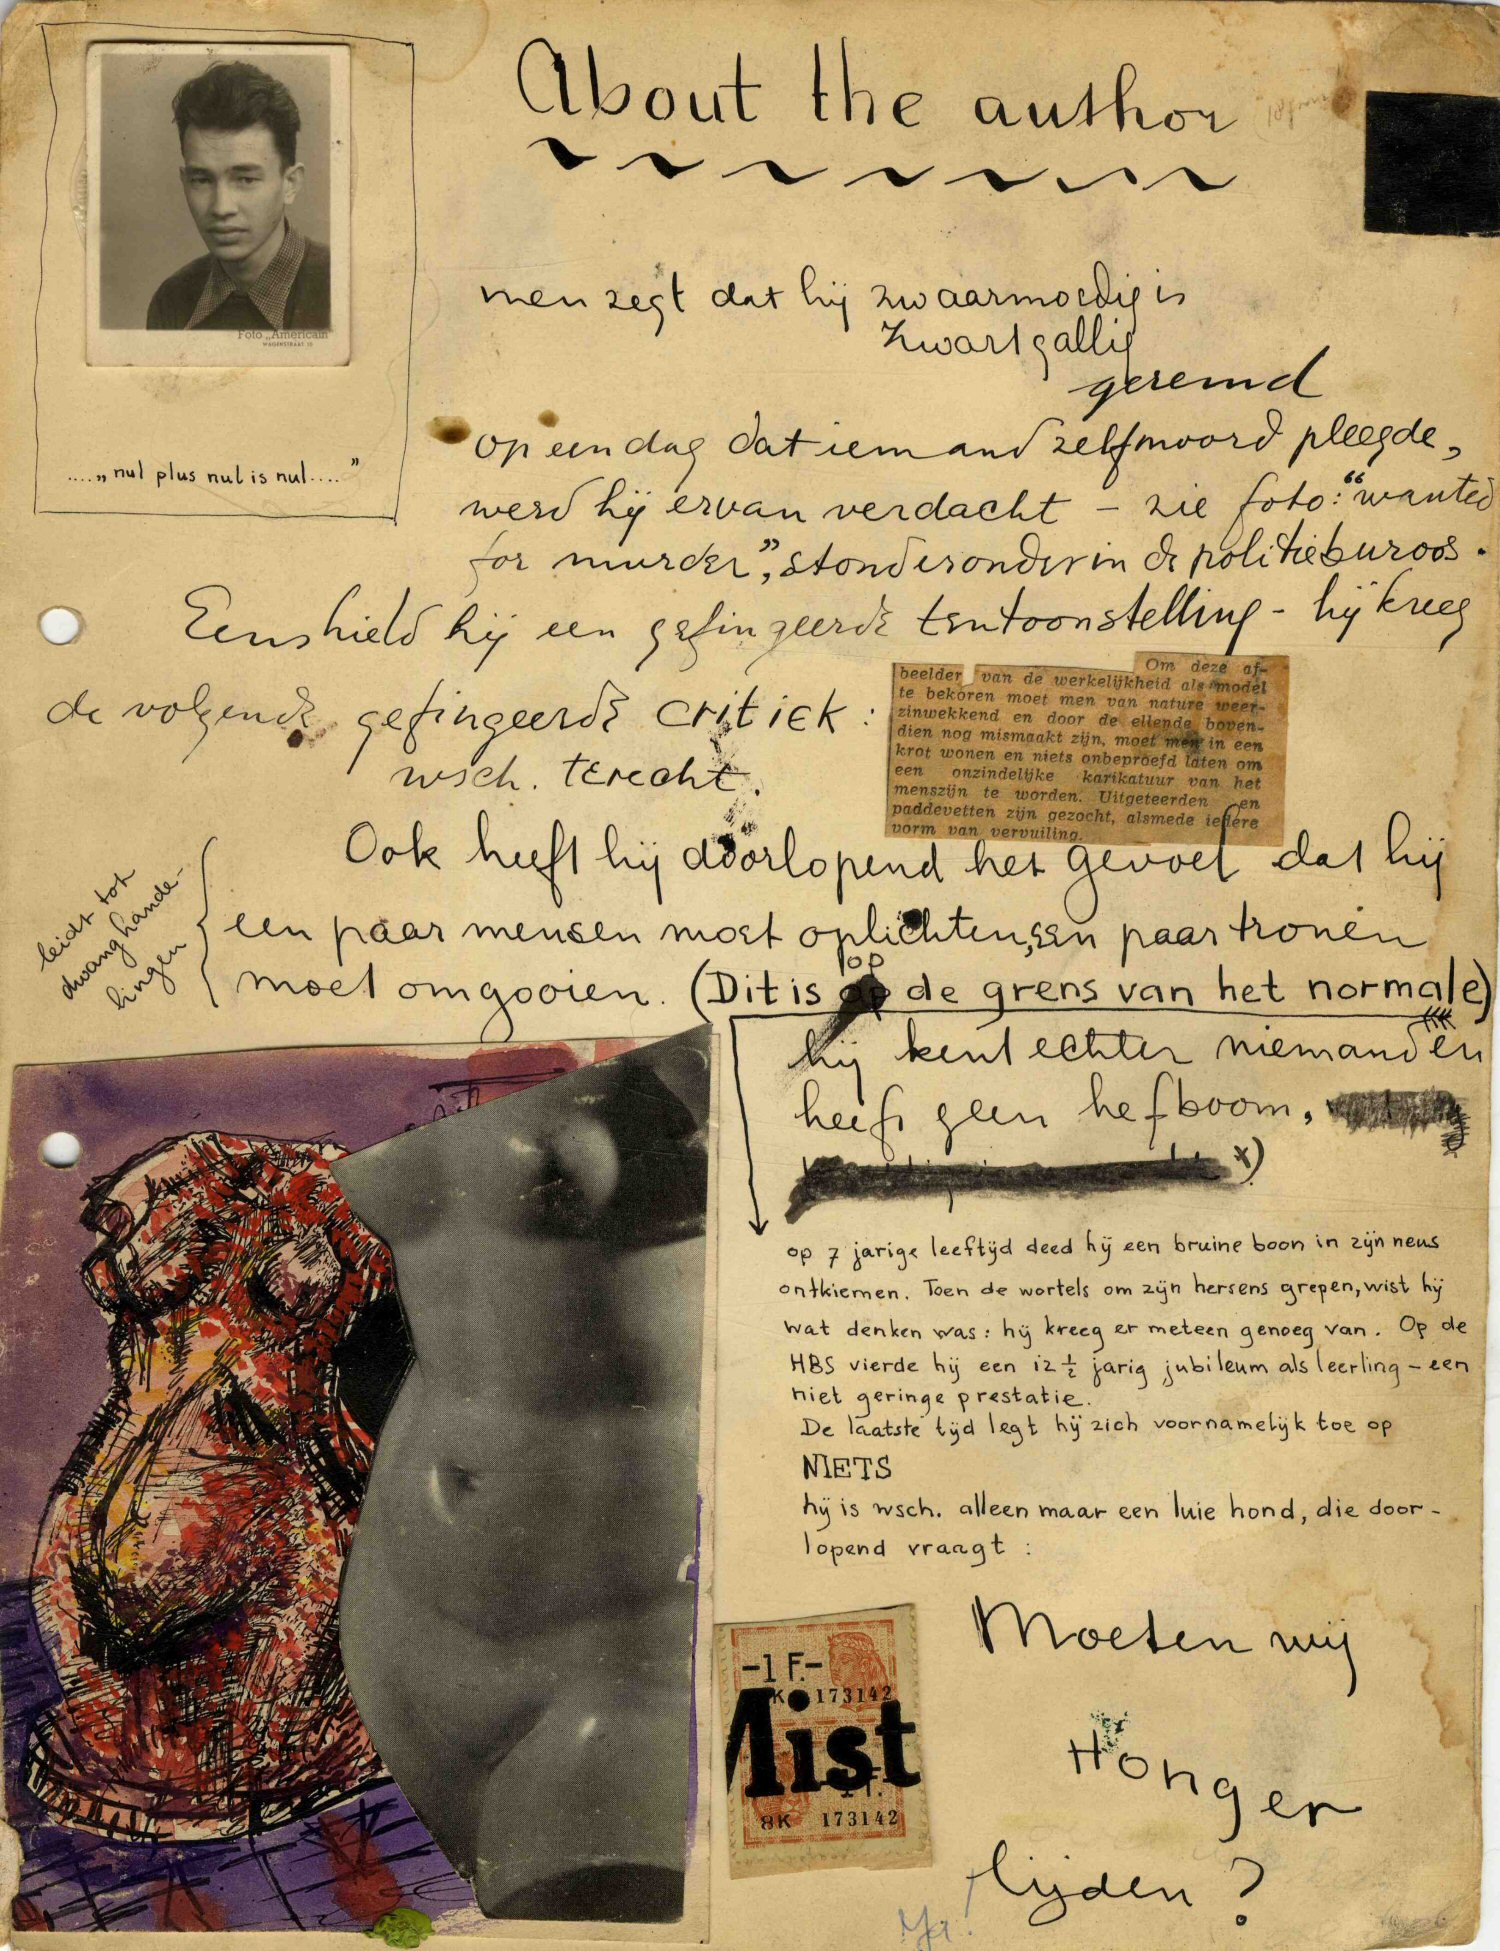 About the author
Foto „American
WAGENSTRAAT 10
....„nul plus nul is nul....”
men zegt dat hij zwaarmoedig is
zwartgallig
geremd
op een dag dat iemand zelfmoord pleegde,
werd hij ervan verdacht – zie foto: “wanted
for murder”, stond eronder in de politieburoos.
Eens hield hij een gefingeerde tentoonstelling – hij kreeg
de volgende gefingeerde critiek :
wsch. terecht.
Om deze af-
beelder van de werkelijkheid als model
te bekoren moet men van nature weer-
zinwekkend en door de ellende boven-
dien nog mismaakt zijn, moet men in een
krot wonen en niets onbeproefd laten om
een onzindelijke karikatuur van het
menszijn te worden. Uitgeteerden en
paddevetten zijn gezocht, alsmede iedere
vorm van vervuiling.
Ook heeft hij doorlopend het gevoel dat hij
een paar mensen moet oplichten, een paar tronen
moet omgooien. (Dit is op de grens van het normale)
leidt tot
dwanghande-
lingen
hij kent echter niemand en
heeft geen hefboom,
*)
op 7 jarige leeftijd deed hij een bruine boon in zijn neus
ontkiemen. Toen de wortels om zijn hersens grepen, wist hij
wat denken was: hij kreeg er meteen genoeg van. Op de
HBS vierde hij een 12 ½ jarig jubileum als leerling – een
niet geringe prestatie.
De laatste tijd legt hij zich voornamelijk toe op
NIETS
hij is wsch. alleen maar een luie hond, die door-
lopend vraagt :
Moeten wij
Honger
lijden ?
Ja!
-1 F.-
K 173142
Mist
8K 173142